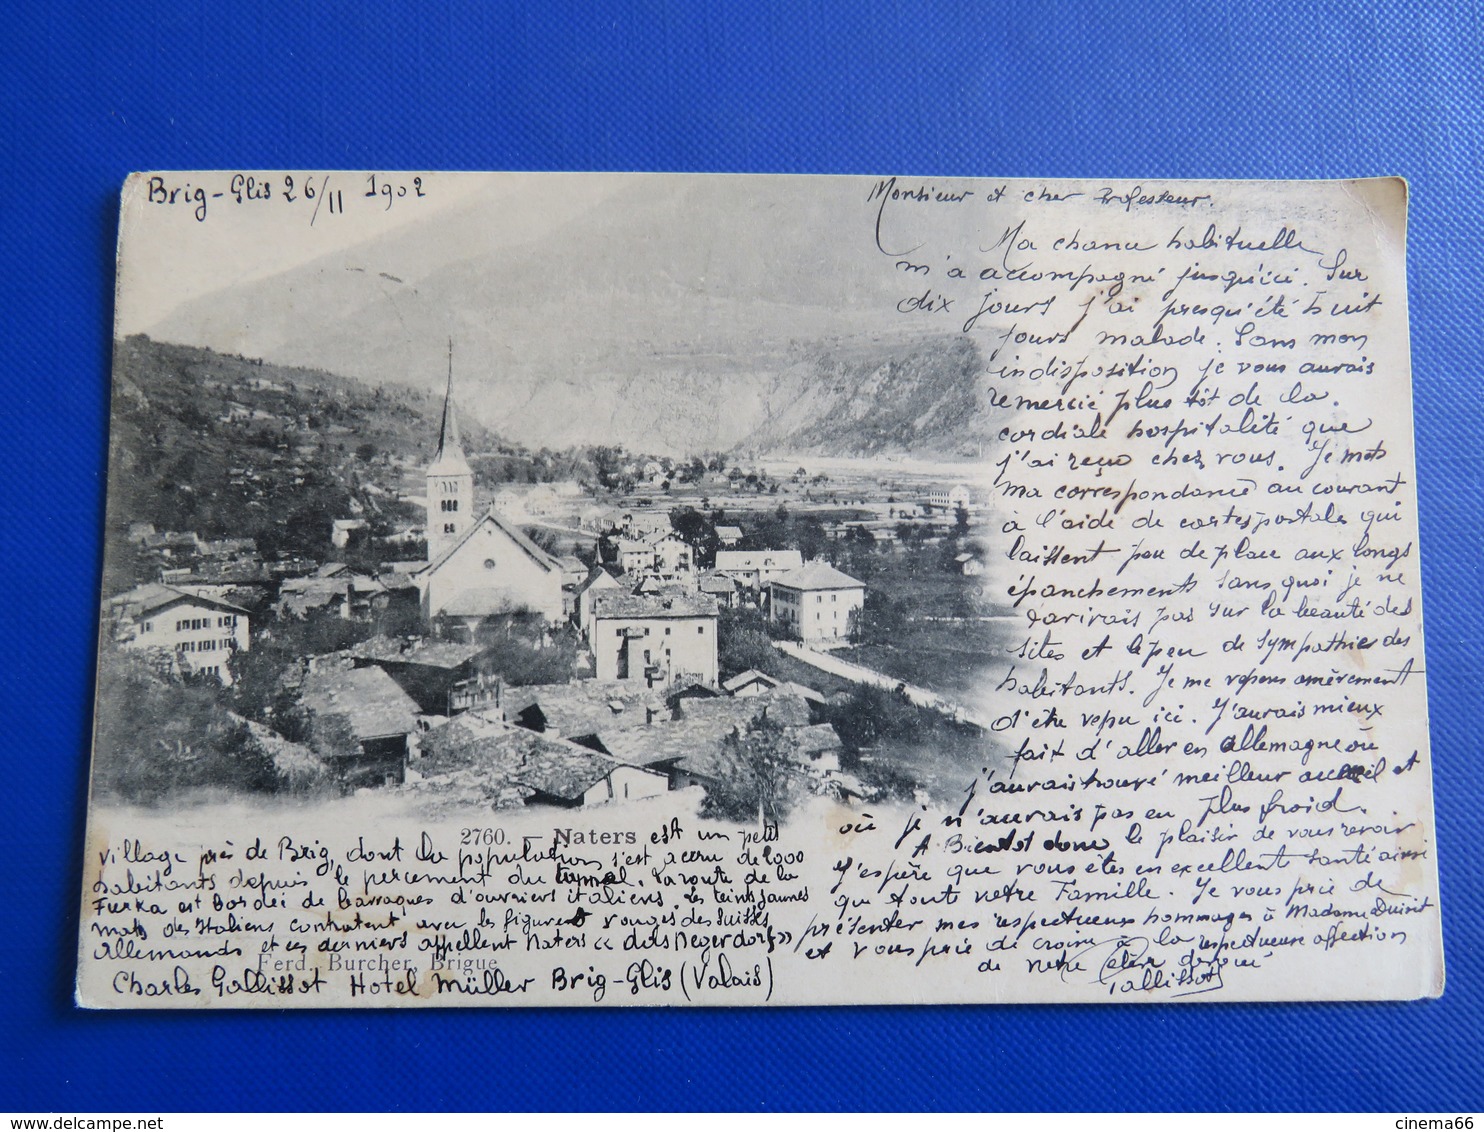 Brig-Glis 26/11 1902
Monsieur et cher Professeur.
Ma chance habituelle
m'a accompagné jusqu'ici. Sur
dix jours j'ai presqu'été huit
jours malade. Sans mon
indisposition je vous aurais
remercié plus tôt de la
cordiale hospitalité que
j'ai reçu chez vous. Je mets
ma correspondance au courant
à l'aide de cartes postales qui
laissent peu de place aux longs
épanchements sans quoi je ne
tarirais pas sur la beauté des
sites et le peu de sympathie des
habitants. Je me repens amèrement
d'être venu ici. J'aurais mieux
fait d'aller en Allemagne où
j'aurais trouvé meilleur accueil et
où je n'aurais pas eu plus froid.
A Bientôt donc le plaisir de vous revoir
J'espère que vous êtes en excellent santé ainsi
que toute votre Famille. Je vous prie de
présenter mes respectueux hommages à Madame
et vous prie de croire à la respectueuse affection
de votre élève dévoué
Gallissot
2760. – Naters est un petit
village près de Brig, dont la population s'est accru de 1000
habitants depuis le percement du tunnel. La route de la
Furka est Bordée de barraques d'ouvriers italiens. Les teints jaunes
mats des Italiens contratent avec les figures rouges des Suisses
Allemands et ces derniers appellent Naters « das Negerdorf »
Ferd. Burcher, Brigue
Charles Gallissot Hotel Müller Brig-Glis (Valais)
cinema66